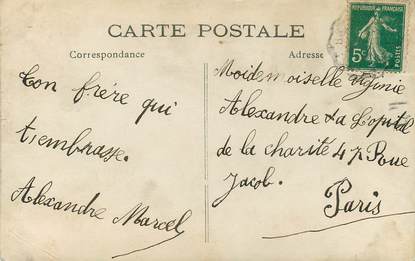 CARTE POSTALE
Correspondance
Adresse
RÉPUBLIQUE FRANÇAISE
5c
POSTES
Ton frère qui
t'embrasse.
Alexandre Marcel
Moidemoiselle Virginie
Alexandre à la Lopital
de la charité 47 Roue
Jacob.
Paris